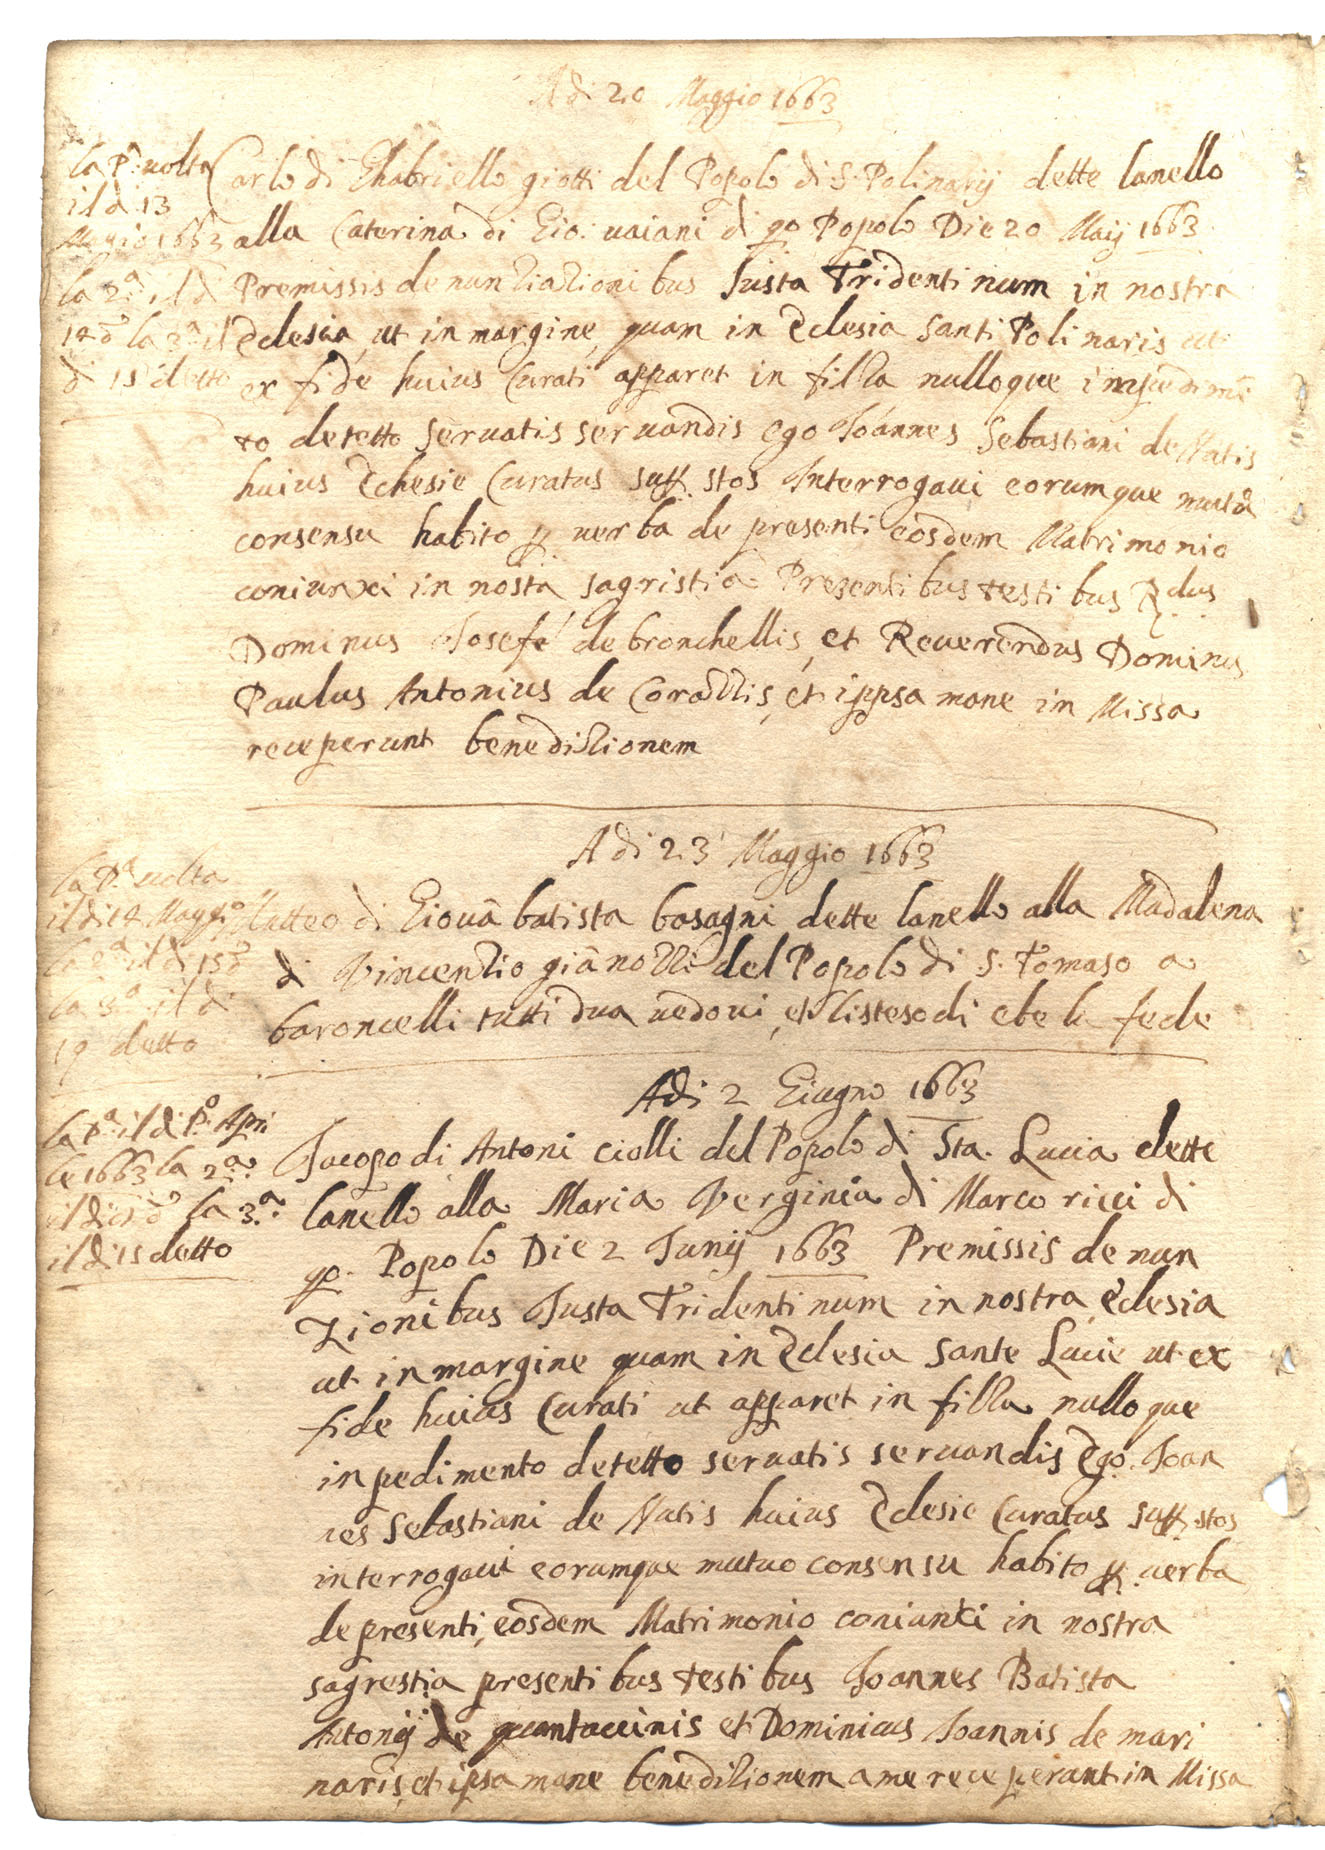 Adi 20 Maggio 1663
la Pa. uolta
il di 13
Maggio 1663
la 2a. il di
14 do la 3a il
di 15 detto
Carlo di Ghabriello giotti del Popolo di S. Polinarij dette lanello
alla Caterina di Gio: uaiani di qo Popolo Die 20 Maij 1663
Premissis denuntiationibus Justa Tridentinum in nostra
Eclesia, ut in margine, quam in Eclesia Santi Polinaris ut
ex fide huius Curati apparet in filza nulloque impedimē
to detetto seruatis seruandis ego Joannes Sebastiani de Natis
huius Echesie Curatus suff. stos Interrogaui eorumque mutuo
consensu habito p. uerba de presenti eosdem Matrimonio
coniunxi in nosta sagristia Presentibus testibus Rdus
Dominus Josefe de bronchellis, et Reuerendus Dominus
Paulus Antonius de Corazzis, et ippsa mane in Missa
receperunt beneditionem
Adi 23 Maggio 1663
la Pa. uolta
il di 14 Maggio
la 2a il di 15 do
la 3a il di
19 detto
Matteo di Giouā batista bosagni dette lanello alla Madalena
di Vincentio giānozzi del Popolo di S. Tomaso a
baroncelli tutti dua uedoui, et listeso di ebe la fede
Adi 2 Giugno 1663
la Pa. il di Po. Apri
le 1663 la 2a.
il di do la 3a.
il di 15 detto
Jacopo di Antoni ciolli del Popolo di Sta. Lucia dette
lanello alla Maria Verginia di Marco ricci di
qo. Popolo Die 2 Junij 1663 Premissis denun
zionibus Justa Tridentinum in nostra eclesia
ut in margine quam in Eclesia Sante Lucie ut ex
fide huius Curati ut apparet in filza nulloque
inpedimento detetto seruatis seruandis Ego Joan
nes Sebastiani de Natis huius Eclesie Curatus suff. stos
interrogaui eorumque mutuo consensu habito p. uerba
de presenti, eosdem Matrimonio coniunxi in nostra
sagrestia presentibus testibus Joannes Batista
Antonij de quantuccinis et Dominicus Joannis de mari
naris, et ipsa mane beneditionem a me receperunt in Missa